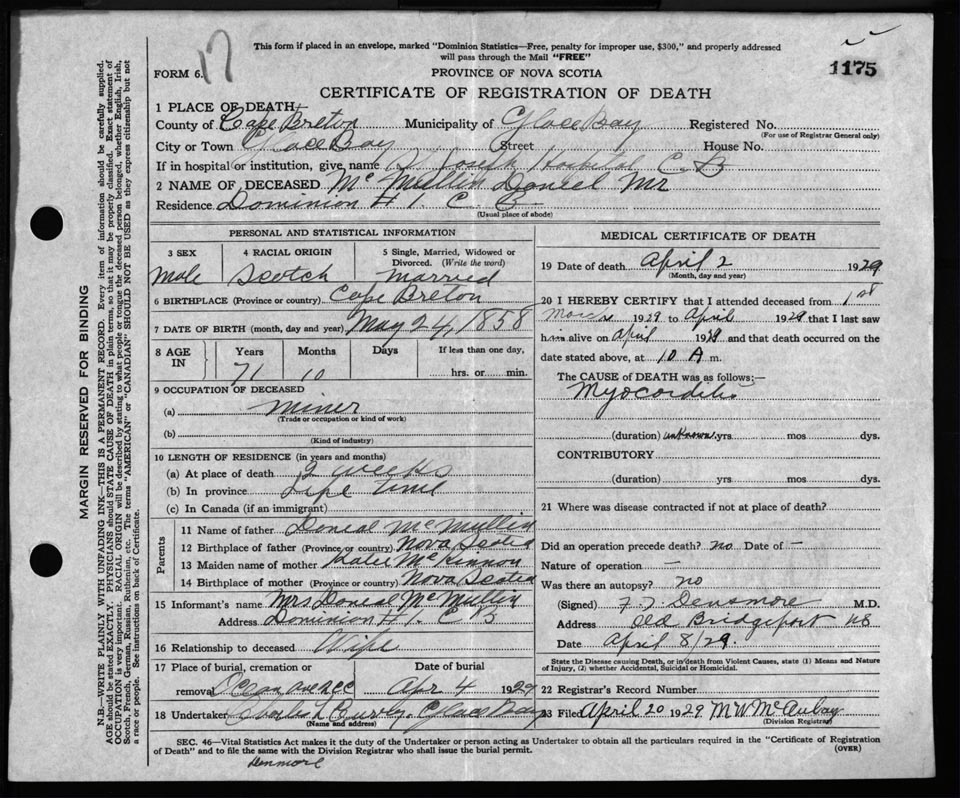 17
This form if placed in an envelope, marked "Dominion Statistics—Free, penalty for improper use, $300," and properly addressed
will pass through the Mail "FREE"
1175
FORM 6.
PROVINCE OF NOVA SCOTIA
CERTIFICATE OF REGISTRATION OF DEATH
1 PLACE OF DEATH
County of Cape Breton Municipality of Glace Bay Registered No.
(For use of Registrar General only)
City or Town Glace Bay Street House No.
If in hospital or institution, give name St Joseph Hospital C.B
2 NAME OF DECEASED Mc Mullin Doneel Mr
Residence Dominion # 1. C. B
(Usual place of abode)
PERSONAL AND STATISTICAL INFORMATION
3 SEX 4 RACIAL ORIGIN 5 Single, Married, Widowed or
Divorced. (Write the word)
Male Scotch Married
6 BIRTHPLACE (Province or country) Cape Breton
7 DATE OF BIRTH (month, day and year) May 24, 1858
8 AGE IN Years Months Days If less than one day,
71 10 hrs. or min.
9 OCCUPATION OF DECEASED
(a) Miner
(Trade or occupation or kind of work)
(b)
(Kind of industry)
10 LENGTH OF RESIDENCE (in years and months)
(a) At place of death 2 weeks
(b) In province Life time
(c) In Canada (if an immigrant)
Parents
11 Name of father Doneal McMullin
12 Birthplace of father (Province or country) Nova Scotia
13 Maiden name of mother McKinnon
14 Birthplace of mother (Province or country) Nova Scotia
15 Informant's name Mrs Doneal McMullin
Address Dominion #1. C B
16 Relationship to deceased Wife
17 Place of burial, cremation or Date of burial
removal Ocean ave RCC Apr 4 1929
18 Undertaker Charles L Curry. Glace Bay
(Name and address)
MEDICAL CERTIFICATE OF DEATH
19 Date of death April 2 1929
(Month, day and year)
20 I HEREBY CERTIFY that I attended deceased from 1st
March 1929 to April 1929 that I last saw
him alive on April 1929 and that death occurred on the
date stated above, at 10 A m.
The CAUSE OF DEATH was as follows:—
Myocorditis
(duration) unknown yrs mos dys.
CONTRIBUTORY
(duration) yrs mos dys.
21 Where was disease contracted if not at place of death?
Did an operation precede death? no Date of —
Nature of operation —
Was there an autopsy? no
(Signed) F. T Densmore M.D.
Address Old Bridgeport NS
Date April 8/29.
State the Disease causing Death, or in death from Violent Causes, state (1) Means and Nature
of Injury, (2) whether Accidental, Suicidal or Homicidal.
22 Registrar's Record Number
23 Filed April 20 1929 M W McAulay
(Division Registrar)
SEC. 46—Vital Statistics Act makes it the duty of the Undertaker or person acting as Undertaker to obtain all the particulars required in the "Certificate of Registration
of Death" and to file the same with the Division Registrar who shall issue the burial permit.
(OVER)
Denmore
MARGIN RESERVED FOR BINDING
N.B.—WRITE PLAINLY WITH UNFADING INK—THIS IS A PERMANENT RECORD. Every item of information should be carefully supplied.
AGE should be stated EXACTLY. PHYSICIANS should STATE CAUSE OF DEATH in plain terms, so that it may be properly classified. Exact statement of
OCCUPATION is very important. RACIAL ORIGIN will be described by stating to what people or tongue the deceased person belonged, whether English, Irish,
Scotch, French, German, Russian, Ruthenian, etc. The terms "AMERICAN" or "CANADIAN" SHOULD NOT BE USED as they express citizenship but not
a race or people. See instructions on back of Certificate.